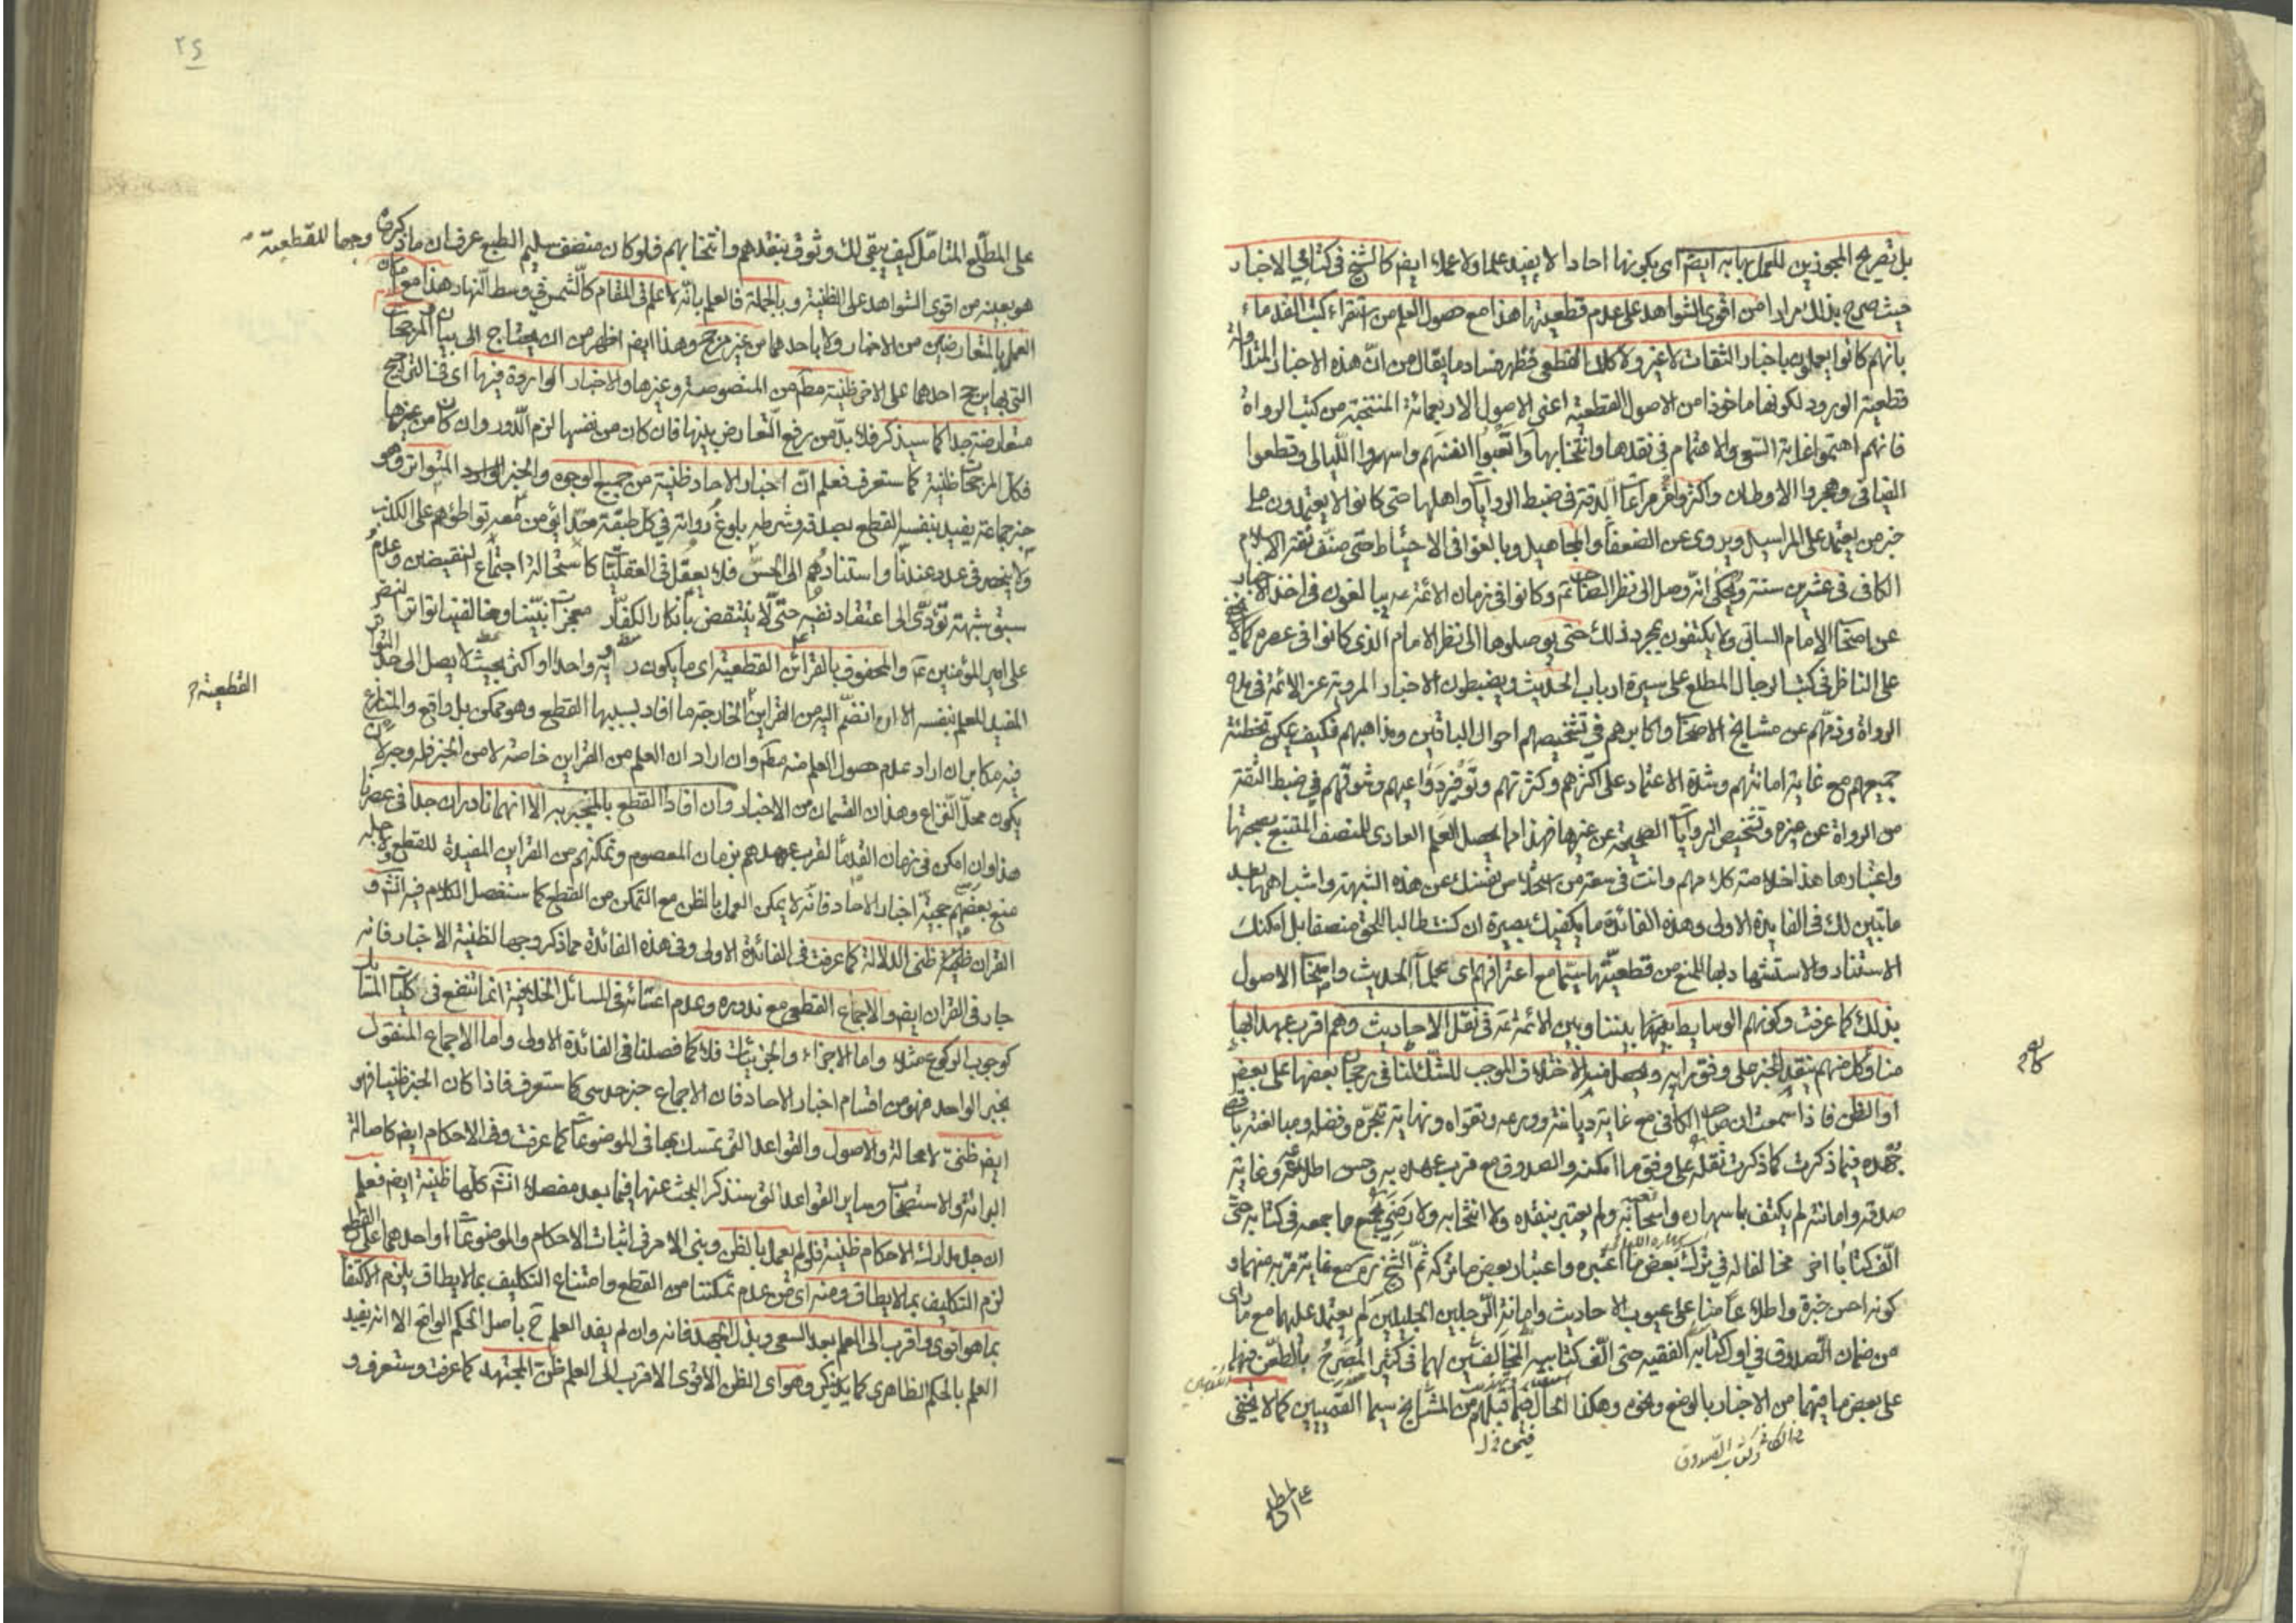 بل تصريح المجوزين للعمل بها به ايضم اى بكونها احادا لا يفيد علما ولا عملا ايضم كالشيخ فى كتابى الاخبار
حيث صرح بذلك مرارا من اقوى الشواهد على عدم قطعيتها هذا مع حصول العلم من استقراء كتب القدماء
بانهم كانوا يعملون باخبار الثقات لا غير ولا كلام القطعى فظهر فساد ما يقال من ان هذه الاخبار المتداولة
قطعية الورود لكونها ماخوذا من الاصول القطعية اعنى الاصول الاربعمائة المنتخبة من كتب الرواة
فانهم اهتموا غاية السعى والاهتمام فى نقدها وانتخابها واتعبوا انفسهم واسهروا الليالى وقطعوا
الفيافى وهجروا الاوطان واكثروا مراعاة الدقة فى ضبط الروايات واهلها حتى كانوا لا يعتمدون على
خبر من يعتمد على المراسيل ويروى عن الضعفاء والمجاهيل وبالغوا فى الاحتياط حتى صنف ثقة الاسلام
الكافى فى عشرين سنة ويحكى انه وصل الى نظر الصاحب وكانوا فى زمان الائمة يبالغون فى اخذ الاخبار
عن اصحاب الامام السابق ولا يكتفون بمجرد ذلك حتى يوصلوها الى نظر الامام الذى كانوا فى عصره كما لا يخفى
على الناظر فى كتب الرجال المطلع على سيرة ارباب الحديث ويضبطون الاخبار المروية عن الائمة فى مدح
الرواة وذمهم عن مشايخ الاصحاب واكابرهم فى تشخيصهم احوال الباقين ومذاهبهم فكيف يمكن تخطئة
جميعهم مع غاية امانتهم وشدة الاعتماد على اكثرهم وكثرتهم وتوفر دواعيهم وشوقهم فى ضبط الثقة
من الرواة عن غيره وتشخيص الروايات الصحيحة عن غيرها فهذا مما يحصل العلم العادى للمنصف المتتبع بصحتها
واعتبارها هذا خلاصة كلامهم وانت فى سعة من استخلاص نفسك عن هذه الشبهة واشباهها بعد
ما تبين لك فى الفايدة الاولى وهذه الفائدة ما يكفيك بصيرة ان كنت طالبا للحق منصفا بل امكنك
الاستناد والاستشهاد بها للمنع من قطعيتها سيما مع اعترافهم اى علماء الحديث واصحاب الاصول
بذلك كما عرفت وكونهم الوسايط بيننا وبين الائمة عم فى نقل الاحاديث وهم اقرب عهدا بها
منا وكل منهم ينقد الخبر على وفق رايه ويحصل منه الاختلاف الموجب للشك لنا فى رجحان بعضها على بعض
او الظن فاذا سمعت ان صاحب الكافى مع غاية ديانته وورعه وتقواه ونهاية تبحره وفضله ومبالغته باقصى
جهده فيما ذكرت كما ذكرت نقله على وفق ما امكنه والصدوق مع قرب عهده به وحسن اطلاعه وغاية
صدقه وامانته لم يكتف باسهاره واتعابه ولم يعتبر بنقده ولا انتخابه ولا رضى بجميع ما جمعه فى كتابه حتى
الف كتابا اخر مخالفا له فى ترك بعض ما اعتبره واعتبار بعض ما تركه ثم الشيخ ره مع غاية قربه منهما و
كونه احسن خبرة واطلاعا منا على عيوب الاحاديث وامانة الرجلين الجليلين لم يعتمد عليهما مع ما راى
من ضمان الصدوق فى اول كتابه الفقيه حتى الف كتابيه المخالفين لهما فى كثير المصرح بالطعن فيهما
على بعض ما فيهما من الاخبار بالوضع ونحوه وهكذا الحال فيما قبلهم من المشايخ سيما القميين كما لا يخفى
وكتاب الصدوق
على المطلع
على المطلع المتامل كيف يبقى لك وثوق بنقدهم وانتخابهم فلو كان منصف سليم الطبع عرف ان ما ذكروه وجها للقطعية
هو بعينه من اقوى الشواهد على الظنية وبالجملة فالعلم بانه لا علم فى المقام كالشمس فى وسط النهار هذا مع
العمل بالمتعارضين من الاخبار ولا باحدهما من غير مرجح وهذا ايضم اظهر من ان يحتاج الى بيان والمرجحات
التى بها يرجح احدهما على الاخر ظنية مطم من المنصوصة وغيرها والاخبار الواردة فيها اى فى التراجيح
متعارضة جدا كما سيذكر فلا بد من رفع التعارض بينها فان كان من نفسها لزم الدور وان كان من غيرها
فكل المرجحات ظنية كما ستعرف فعلم ان اخبار الاحاد ظنية من جميع الوجوه والخبر الوارد المتواتر وهو
خبر جماعة يفيد بنفسه القطع بصدقه وشرطه بلوغ رواته فى كل طبقة حدا يؤمن معه تواطؤهم على الكذب
ولا ينحصر فى عدد عندنا واستنادهم الى الحس فلا يعقل فى العقليات كاستحالة اجتماع النقيضين وعدم
سبق شبهة تؤدى الى اعتقاد نفيه حتى لا ينتقض بانكار الكفار معجزات نبينا ومخالفينا تواتر النص
على امير المؤمنين عم والمحفوف بالقرائن القطعية اى ما يكون رواية واحدا او اكثر بحيث لا يصل الى حد التواتر
القطعية
المفيد للعلم بنفسه الا ان انضم اليه من القراين الخارجة ما افاد بسببها القطع وهو ممكن بل واقع والمنازع
فيه مكابر ان اراد عدم حصول العلم منه مطم وان اراد ان العلم من القراين خاصة لا من الخبر فله وجه لان
يكون محل النزاع وهذان القسمان من الاخبار وان افادا القطع بالمخبر به الا انهما نادران جدا فى عصرنا
هذا وان امكن فى زمان القدماء لقرب عهدهم بزمان المعصوم وتمكنهم من القراين المفيدة للقطع ولاجله
منع بعضهم حجية اخبار الاحاد فانه لا يمكن العمل بالظن مع التمكن من القطع كما سنفصل الكلام فيه انشم و
القران ظنى الدلالة كما عرفت فى الفائدة الاولى وفى هذه الفائدة مما ذكر وجها لظنية الاخبار فانه
جار فى القران ايضم والاجماع القطعى مع ندوره وعدم اعتنائه فى المسائل الخلافية انما ينفع فى كليات المسائل
كوجوب الركوع مثلا واما الاجزاء والجزئيات فلا كما فصلنا فى الفائدة الاولى واما الاجماع المنقول
بخبر الواحد فهو من اقسام اخبار الاحاد فان الاجماع خبر حدسى كما ستعرف فاذا كان الخبر ظنيا فهو
ايضم ظنى لا محالة والاصول والقواعد التى يتمسك بها فى الموضوعات كما عرفت وفى الاحكام ايضم كاصالة
البرائة والاستصحاب وساير القواعد التى سنذكر البحث عنها فيما بعد مفصلا انشم كلها ظنية ايضم فعلم
ان جل مدارك الاحكام ظنية فلو لم يعمل بالظن وبنى الامر فى اثبات الاحكام والموضوعات او احدهما على القطع
لزم التكليف بما لا يطاق ومنه اى من عدم تمكننا من القطع وامتناع التكليف بما لا يطاق يلزم الاكتفاء
بما هو اقوى واقرب الى العلم بعد السعى وبذل الجهد فانه وان لم يفد العلم ح باصل الحكم الواقع الا انه يفيد
العلم بالحكم الظاهرى كما يذكر وهو اى الظن الاقوى الاقرب الى العلم ظن المجتهد كما عرفت وستعرف و